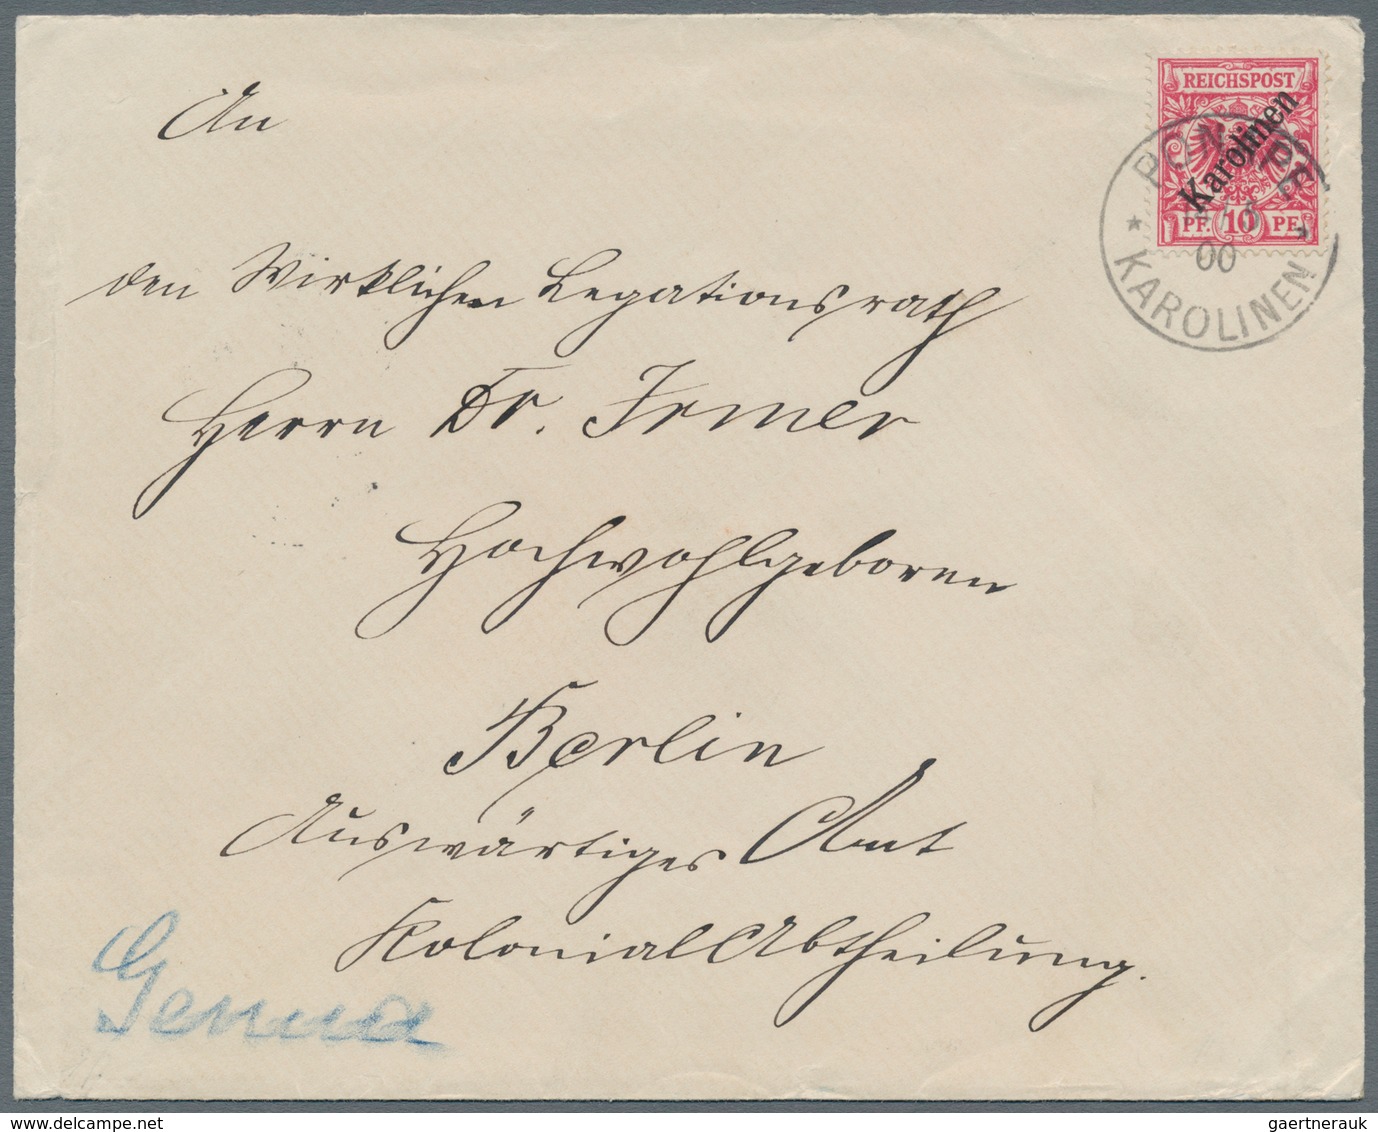 REICHSPOST
Karolinen
PF. 10 PF.
PONAPE
00
KAROLINEN
An
den Wirklichen Legationsrath
Herrn Dr. Irmer
Hochwohlgeboren
Berlin
Auswärtiges Amt
Kolonial Abtheilung.
Genua
www.delcampe.net
gaertnerauk